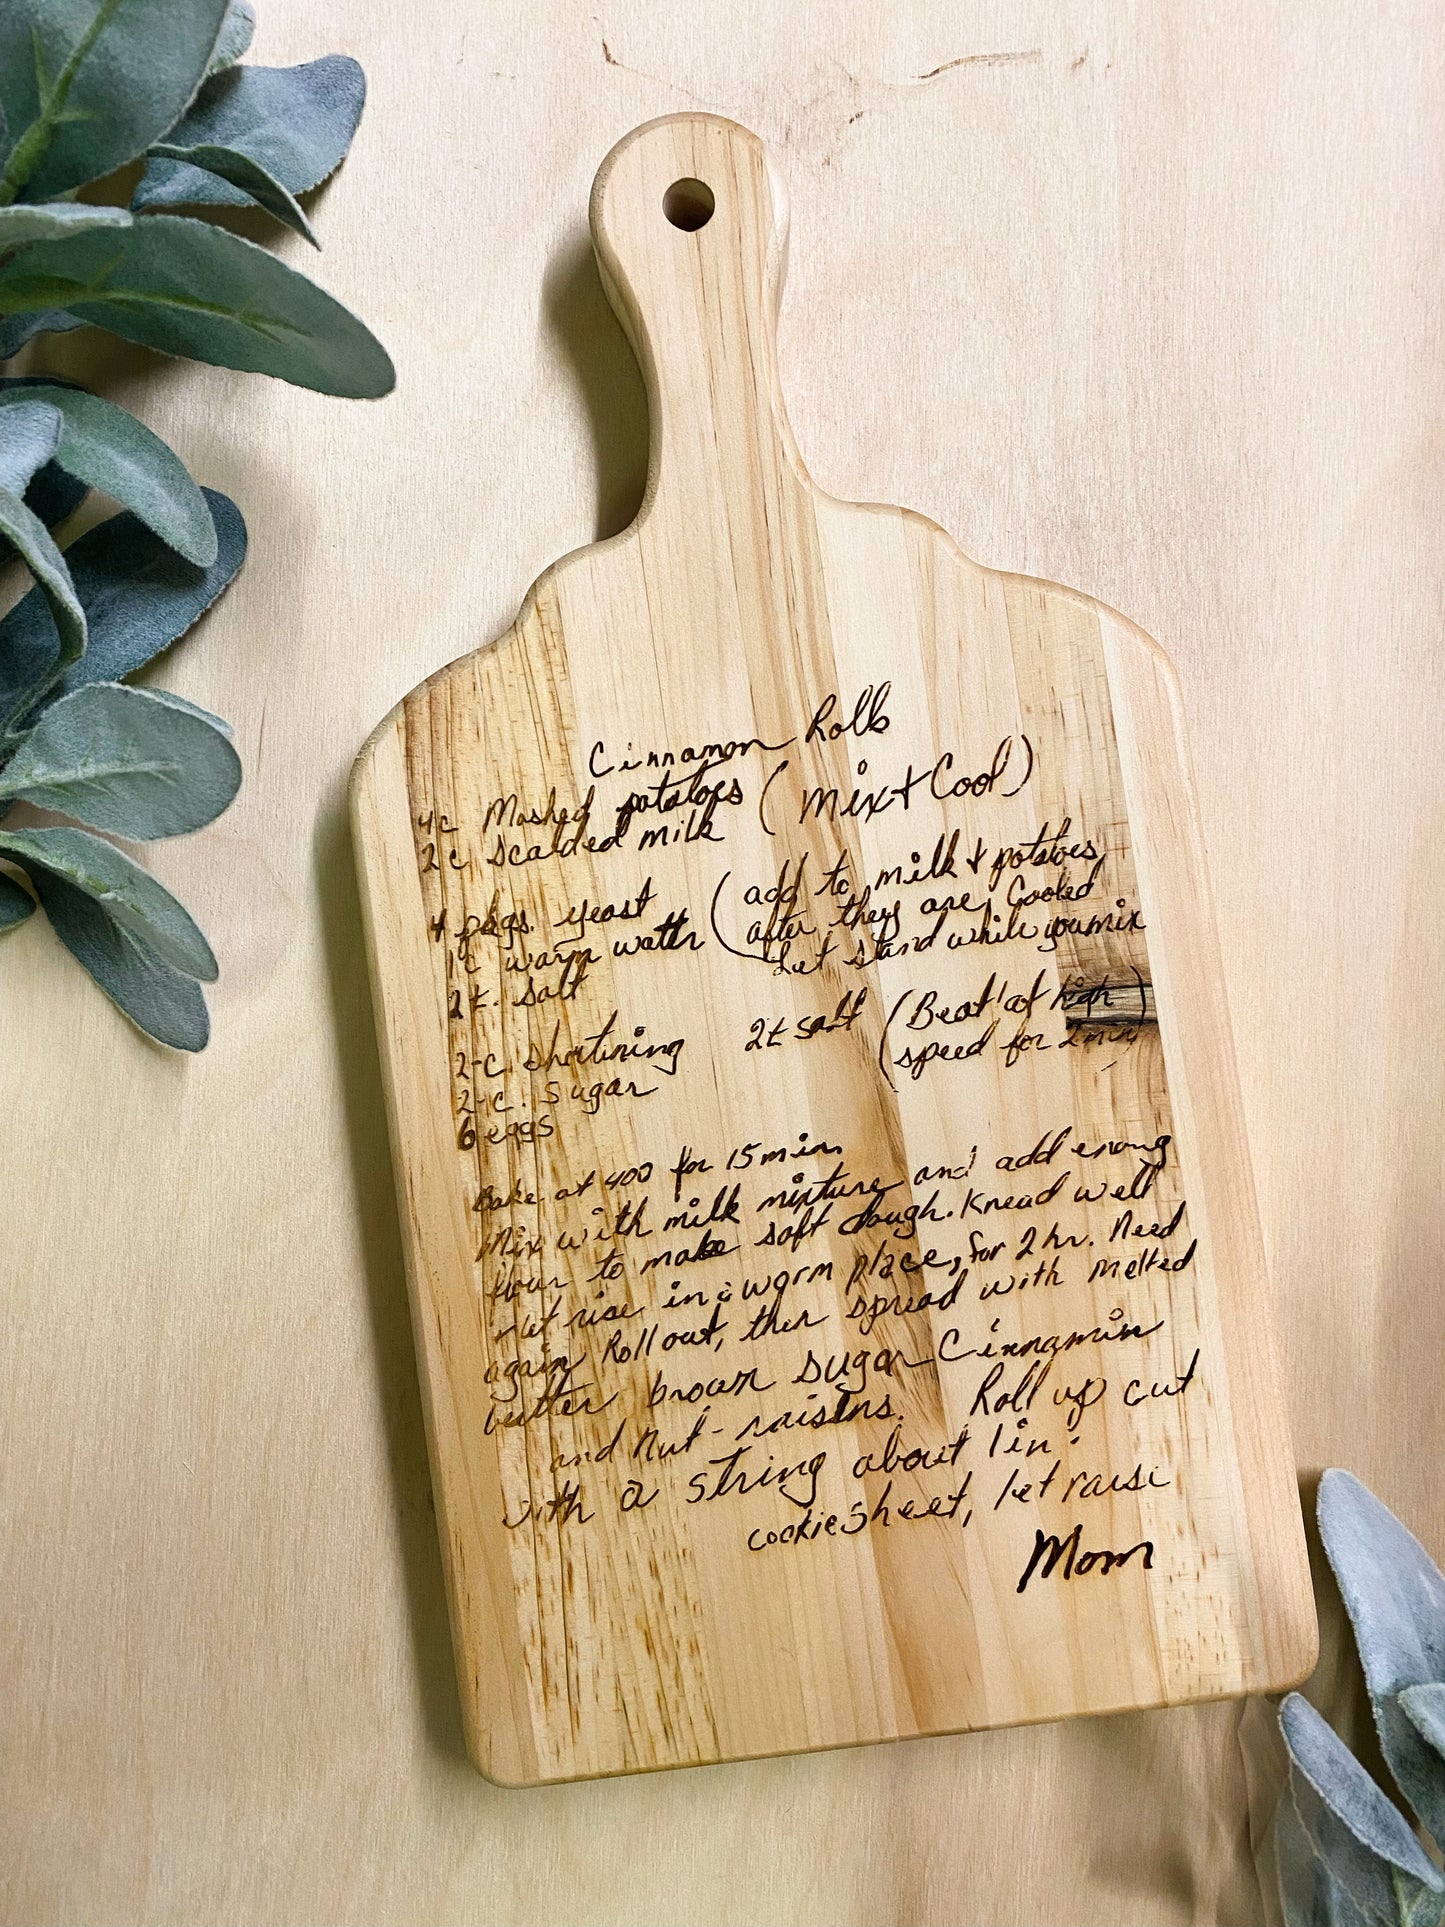 Cinnamon Rolls
4c Mashed potatoes (Mix + Cool)
2c Scalded milk
4 pkgs. yeast (add to milk + potatoes
1c warm water after they are Cooled
2t. salt Let stand while you mix
2-c. shortining 2t salt (Beat at high
2-c. Sugar speed for 2 min)
6 eggs
Bake at 400 for 15 min.
Mix with milk mixture and add enoug
flour to make soft dough. Knead well
let rise in a warm place, for 2 hr. Need
again Roll out, then spread with melted
butter brown sugar Cinnamin
and Nut - raisins. Roll up cut
with a string about 1 in.
cookie sheet, let raise
Mom